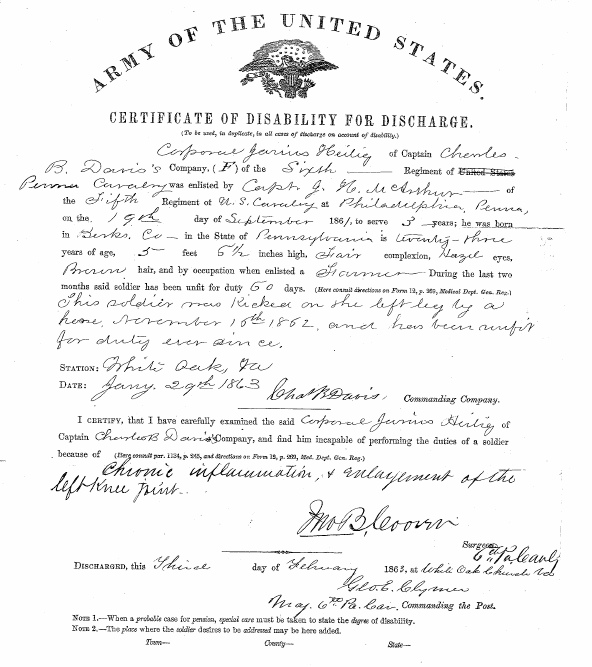 ARMY OF THE UNITED STATES.
CERTIFICATE OF DISABILITY FOR DISCHARGE.
(To be used, in duplicate, in all cases of discharge on account of disability.)
Corporal Jarius Heilig of Captain Charles
B. Davis's Company, (F) of the Sixth Regiment of United States
Penna Cavalry was enlisted by Capt. J. H. McArthur of
the Fifth Regiment of U.S. Cavalry at Philadelphia, Penna,
on the 19th day of September 1861, to serve 3 years; he was born
in Berks. Co in the State of Pennsylvania is twenty-three
years of age, 5 feet 6½ inches high, Fair complexion, Hazel eyes,
Brown hair, and by occupation when enlisted a Farmer During the last two
months said soldier has been unfit for duty 60 days. (Here consult directions on Form 12, p. 269, Medical Dept. Gen. Reg.)
This soldier was Kicked on the left leg by a
horse, November 16th 1862, and has been unfit
for duty ever since.
STATION: White Oak, Va
DATE: Jany. 29th 1863 Chas B Davis, Commanding Company.
I CERTIFY, that I have carefully examined the said Corporal Jarius Heilig of
Captain Charles B Davis's Company, and find him incapable of performing the duties of a soldier
because of (Here consult par. 1134, p. 245, and directions on Form 12, p. 269, Med. Dept. Gen. Reg.)
Chronic inflammation, & enlargement of the
left Knee joint.
Jno B. Coover
Surgeon
6th Pa. Cavly
DISCHARGED, this Third day of February 1863, at White Oak Church Va
Geo. E. Clymer
Maj. 6th Pa. Cav. Commanding the Post.
NOTE 1.—When a probable case for pension, special care must be taken to state the degree of disability.
NOTE 2.—The place where the soldier desires to be addressed may be here added.
Town— County— State—